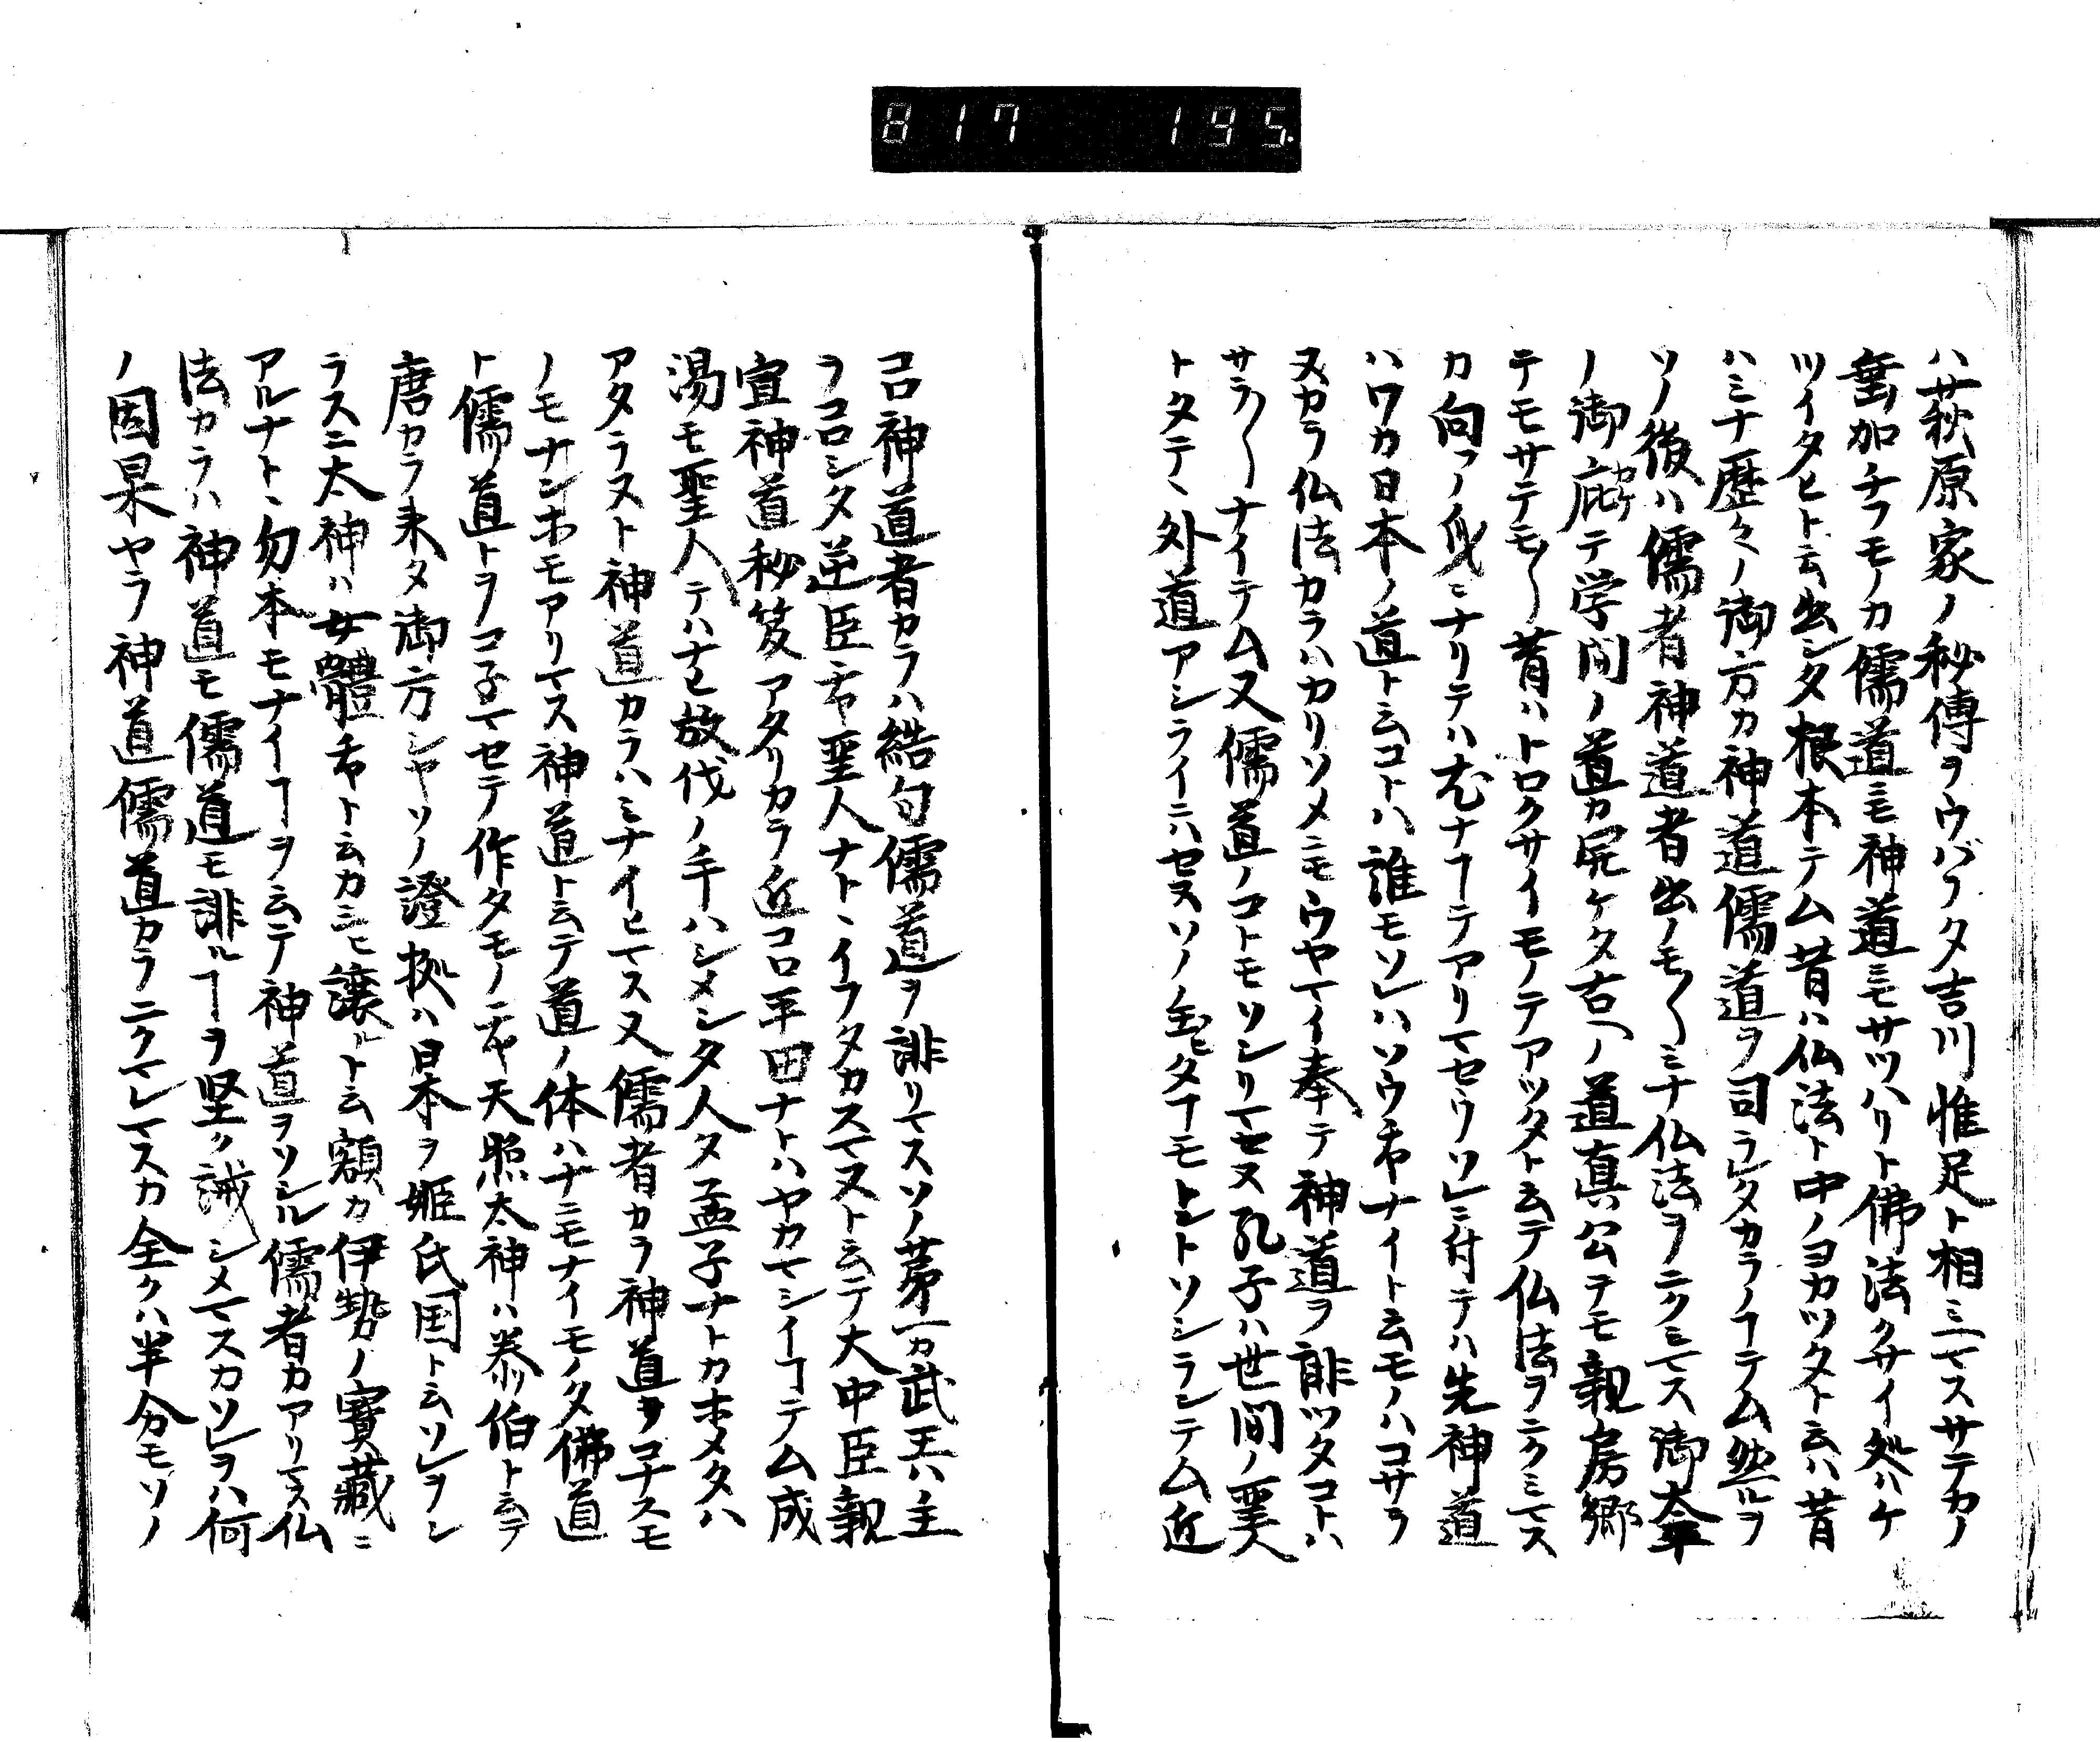 817 195.
ハ萩原家ノ秘傳ヲウバフタ吉川惟足ト相ミヘマスサテカノ
垂加チフモノカ儒道ニモ神道ニモサツハリト佛法クサイ処ハケ
ツイタヒト云出シタ根本テム昔ハ仏法ト中ノヨカツタト云ハ昔
ハミナ歴々ノ御方カ神道儒道ヲ司ラレタカラノヿテム然ルヲ
ソノ後ハ儒者神道者出ノモノ〳〵ミナ仏法ヲニクミマス御本
ノ御庇テ学問ノ道カ開ケタ古ヘノ道真公ヲモ親房郷
テモサテモ〳〵昔ハトロクサイモノテアツタト云テ仏法ヲニクミマス
カ向フノ身ニナリテハ尤ナヿテアリマセウソレニ付テハ先神道
ハワカ日本ノ道ト云コトハ誰モソレハソウ𪜈ナイト云モノハコサラ
ヌカラ仏法カラハカリソメニモウヤマイ奉テ神道ヲ誹ツタコトハ
サラ〳〵ナイテム又儒道ノコトモソシリマセヌ孔子ハ世間ノ聖人
トタテヽ外道アシライニハセヌソノ金ヒタヿモトントソシラシテム近
コロ神道者カラハ結句儒道ヲ誹リマスソノ第一カ武王ハ主
ヲコロシタ逆臣チヤ聖人ナトヽイフタカスマヌト云テ大中臣親
宣神道秘笈アタリカラ近コロ平田ナトハヤカマシイヿテム成
湯モ聖人テハナヒ放伐ノ手ハシメシタ人タ孟子ナトカホメタハ
アタラヌト神道カラハミナイヒマス又儒者カラ神道ヲコナスモ
ノモナンホモアリマス神道ト云テ道ノ体ハナニモナイモノタ佛道
ト儒道トヲコ子マセテ作タモノチヤ天照太神ハ泰伯ト云テ
唐カラ来タ御方シヤソノ證拠ハ日本ヲ姫氏国ト云ソレヲシ
ラスニ太神ハ女體チヤト云カ三ヒ譲ルト云額カ伊勢ノ寶藏ニ
アルナトヽ勿本モナイヿヲ云テ神道ヲソシル儒者カアリマス仏
法カラハ神道モ儒道モ誹ルヿヲ堅ク誡シメマスカソレヲハ何
ノ因果ヤラ神道儒道カラニクマレマスカ全クハ半分モソノ